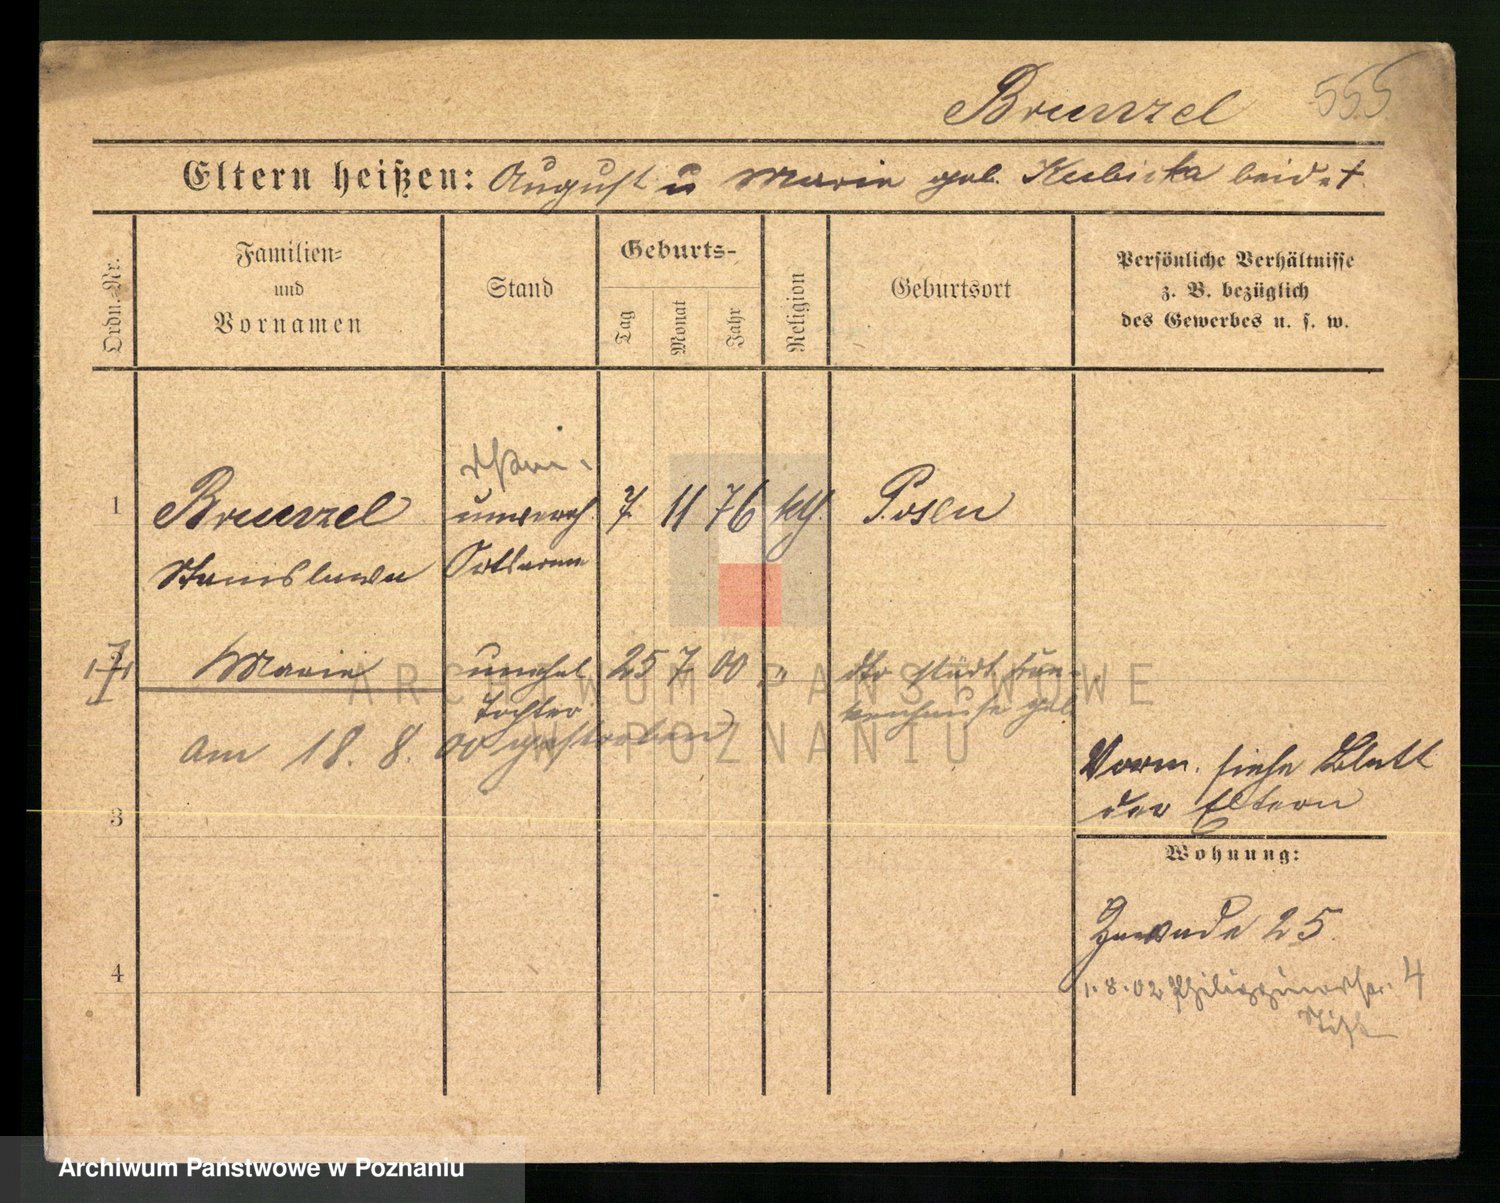 Brunzel 555
Eltern heißen: August u Marie geb. Kubicka beide t.
Ordn.-Nr.
Familien-
und
Vornamen
Stand
Geburts-
Tag
Monat
Jahr
Religion
Geburtsort
Persönliche Verhältnisse
z. B. bezüglich
des Gewerbes u. s. w.
1 Brunzel unverh. 7 11 76 kth. Posen
Stanislawa
2 Marie unehel 25 7 00 " dto städt Kran-
Tochter kenhause geb
am 18. 8. 00 gestorben
Vorm. siehe Blatt
der Eltern
3
Wohnung:
Zawade 25.
4
1.8.02 4
ARCHIWUM PAŃSTWOWE
W POZNANIU
Archiwum Państwowe w Poznaniu